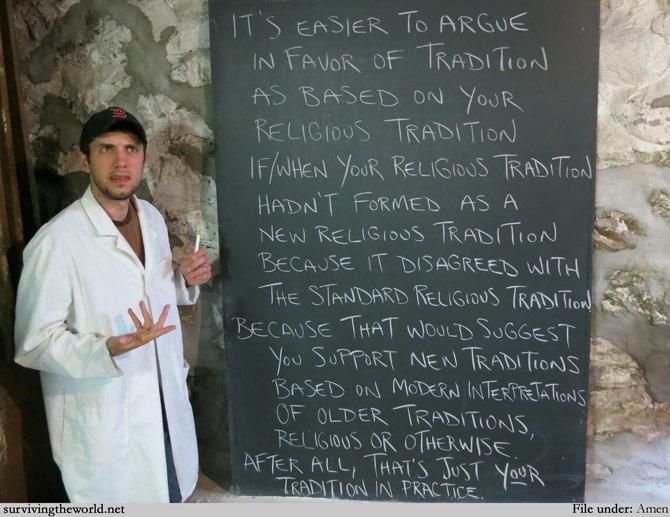 IT'S EASIER TO ARGUE
IN FAVOR OF TRADITION
AS BASED ON YOUR
RELIGIOUS TRADITION
IF/WHEN YOUR RELIGIOUS TRADITION
HADN'T FORMED AS A
NEW RELIGIOUS TRADITION
BECAUSE IT DISAGREED WITH
THE STANDARD RELIGIOUS TRADITION
BECAUSE THAT WOULD SUGGEST
YOU SUPPORT NEW TRADITIONS
BASED ON MODERN INTERPRETATIONS
OF OLDER TRADITIONS,
RELIGIOUS OR OTHERWISE.
AFTER ALL, THAT'S JUST YOUR
TRADITION IN PRACTICE.
survivingtheworld.net
File under: Amen